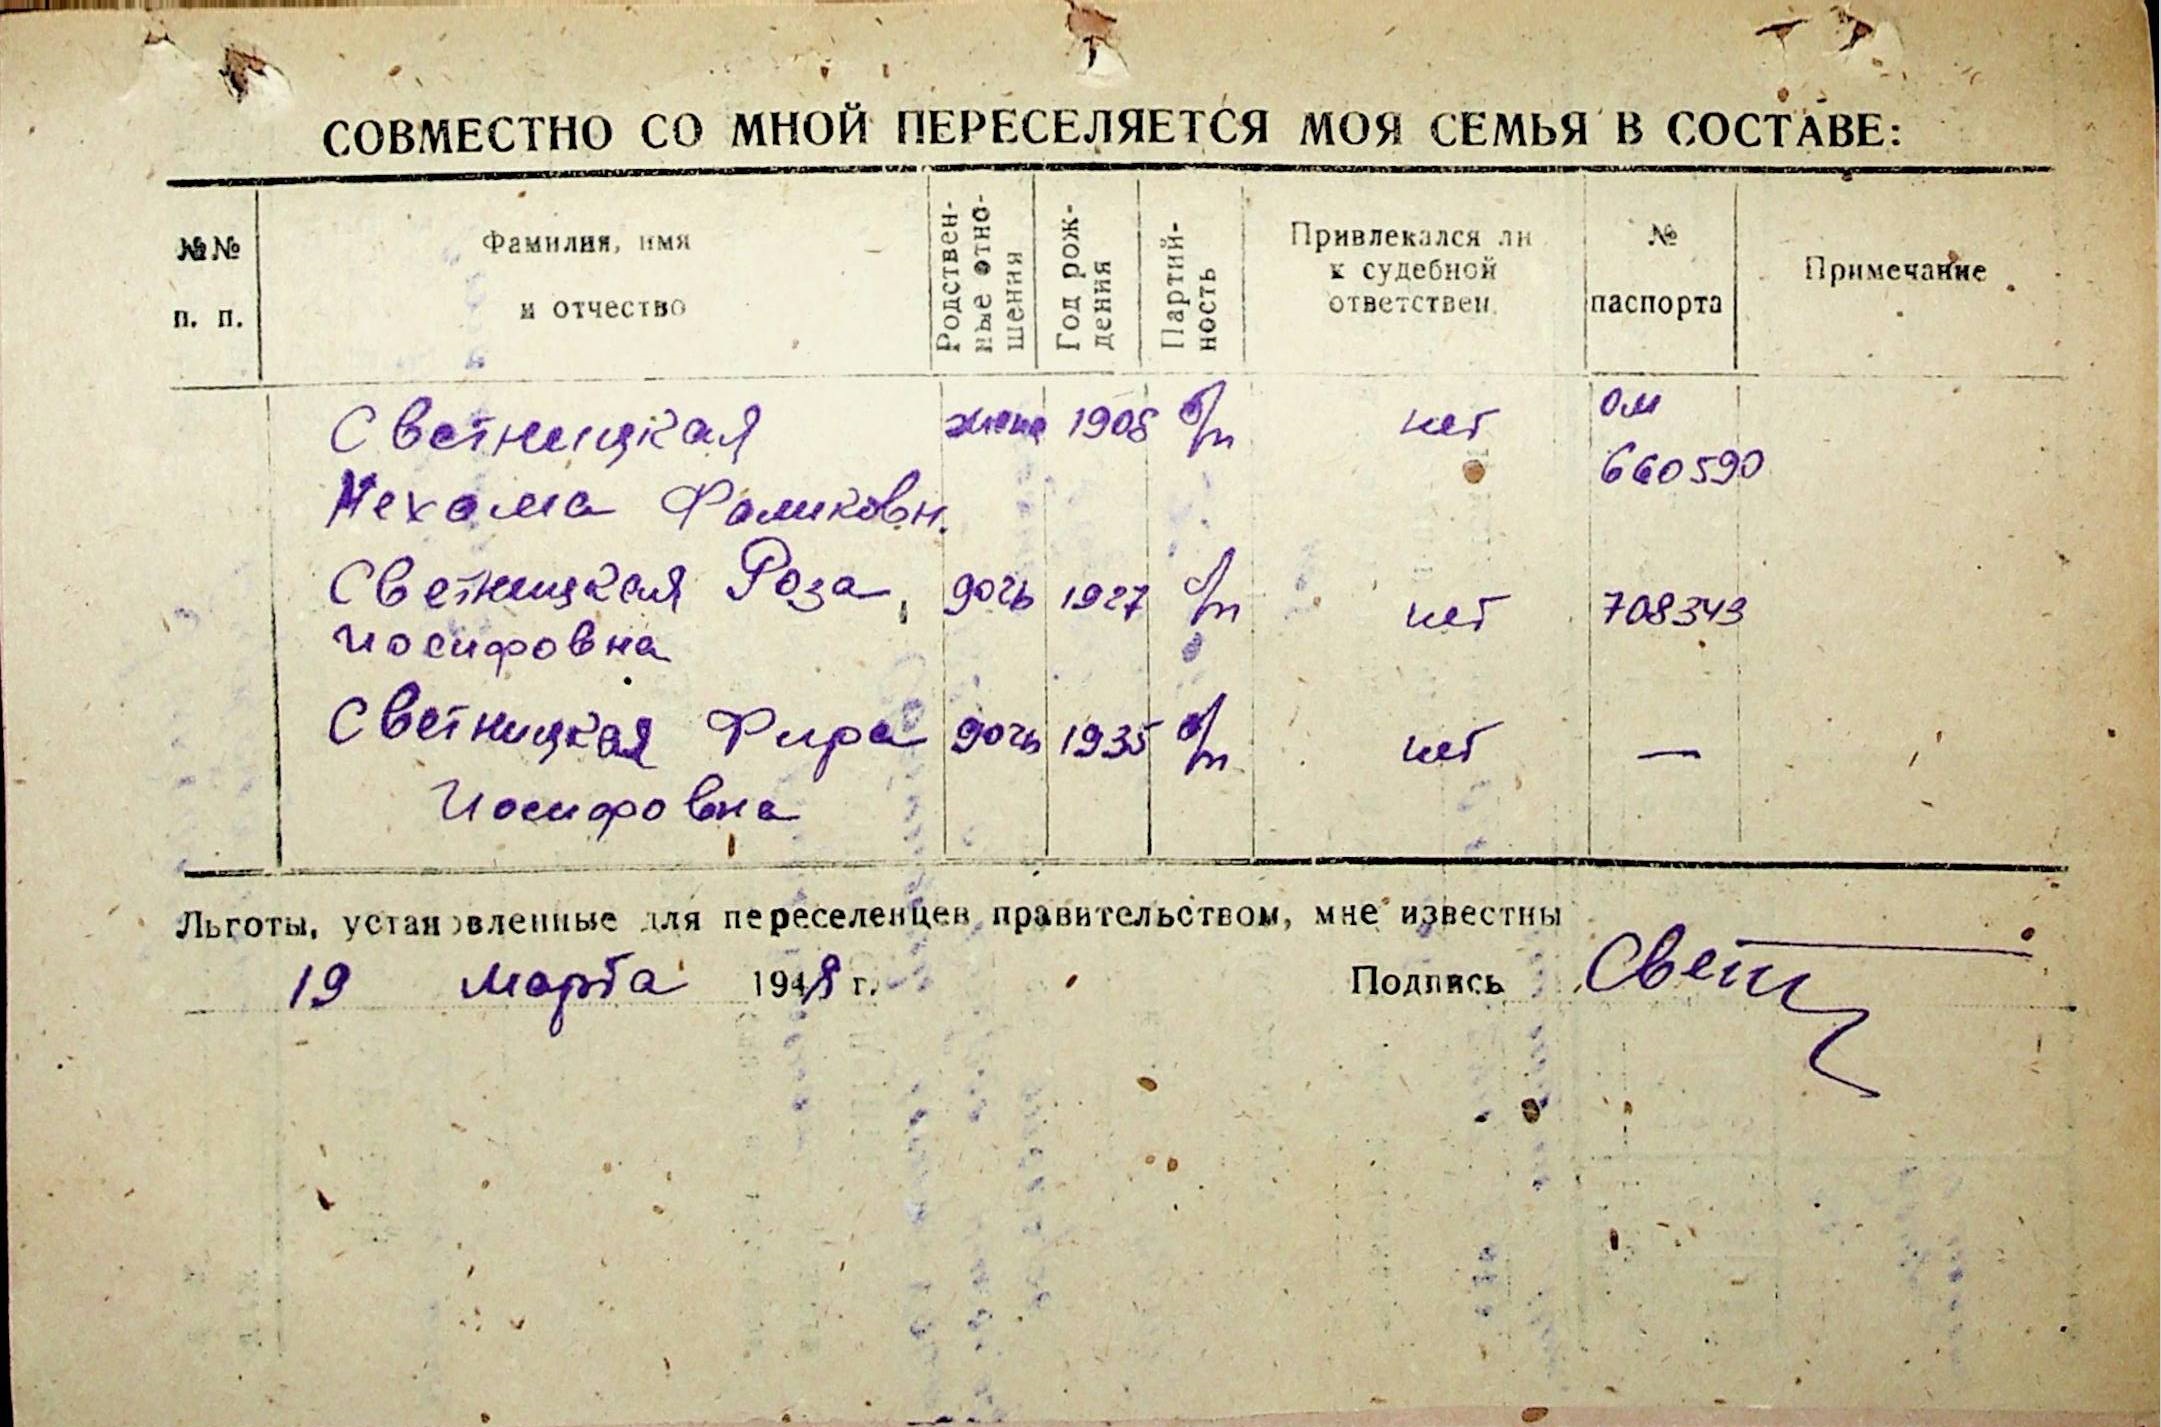 СОВМЕСТНО СО МНОЙ ПЕРЕСЕЛЯЕТСЯ МОЯ СЕМЬЯ В СОСТАВЕ:
№№ п. п.
Фамилия, имя и отчество
Родствен-
ные отно-
шения
Год рож-
дения
Партий-
ность
Привлекался ли
к судебной
ответствен.
№
паспорта
Примечание
Светницкая жена 1908 б/п нет ОМ
660590
Нехама Фаликовн.
Светницкая Роза дочь 1927 б/п нет 708343
Иосифовна
Светницкая Фира дочь 1935 б/п нет —
Иосифовна
Льготы, установленные для переселенцев правительством, мне известны
19 марта 1948 г. Подпись Свет